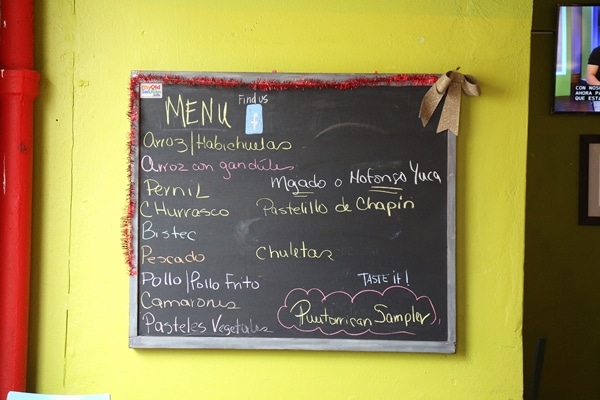 MENU
Find us
f
Arroz/Habichuelas
Arroz con gandules
Pernil
Mgado o Mofongo Yuca
Churrasco
Pastelillo de Chapin
Bistec
Pescado
Chuletas
Pollo/Pollo Frito
TASTE it!
Camarones
Puertorrican Sampler
Pasteles Vegetales
CON NOS
AHORA PA
QUE ESTA